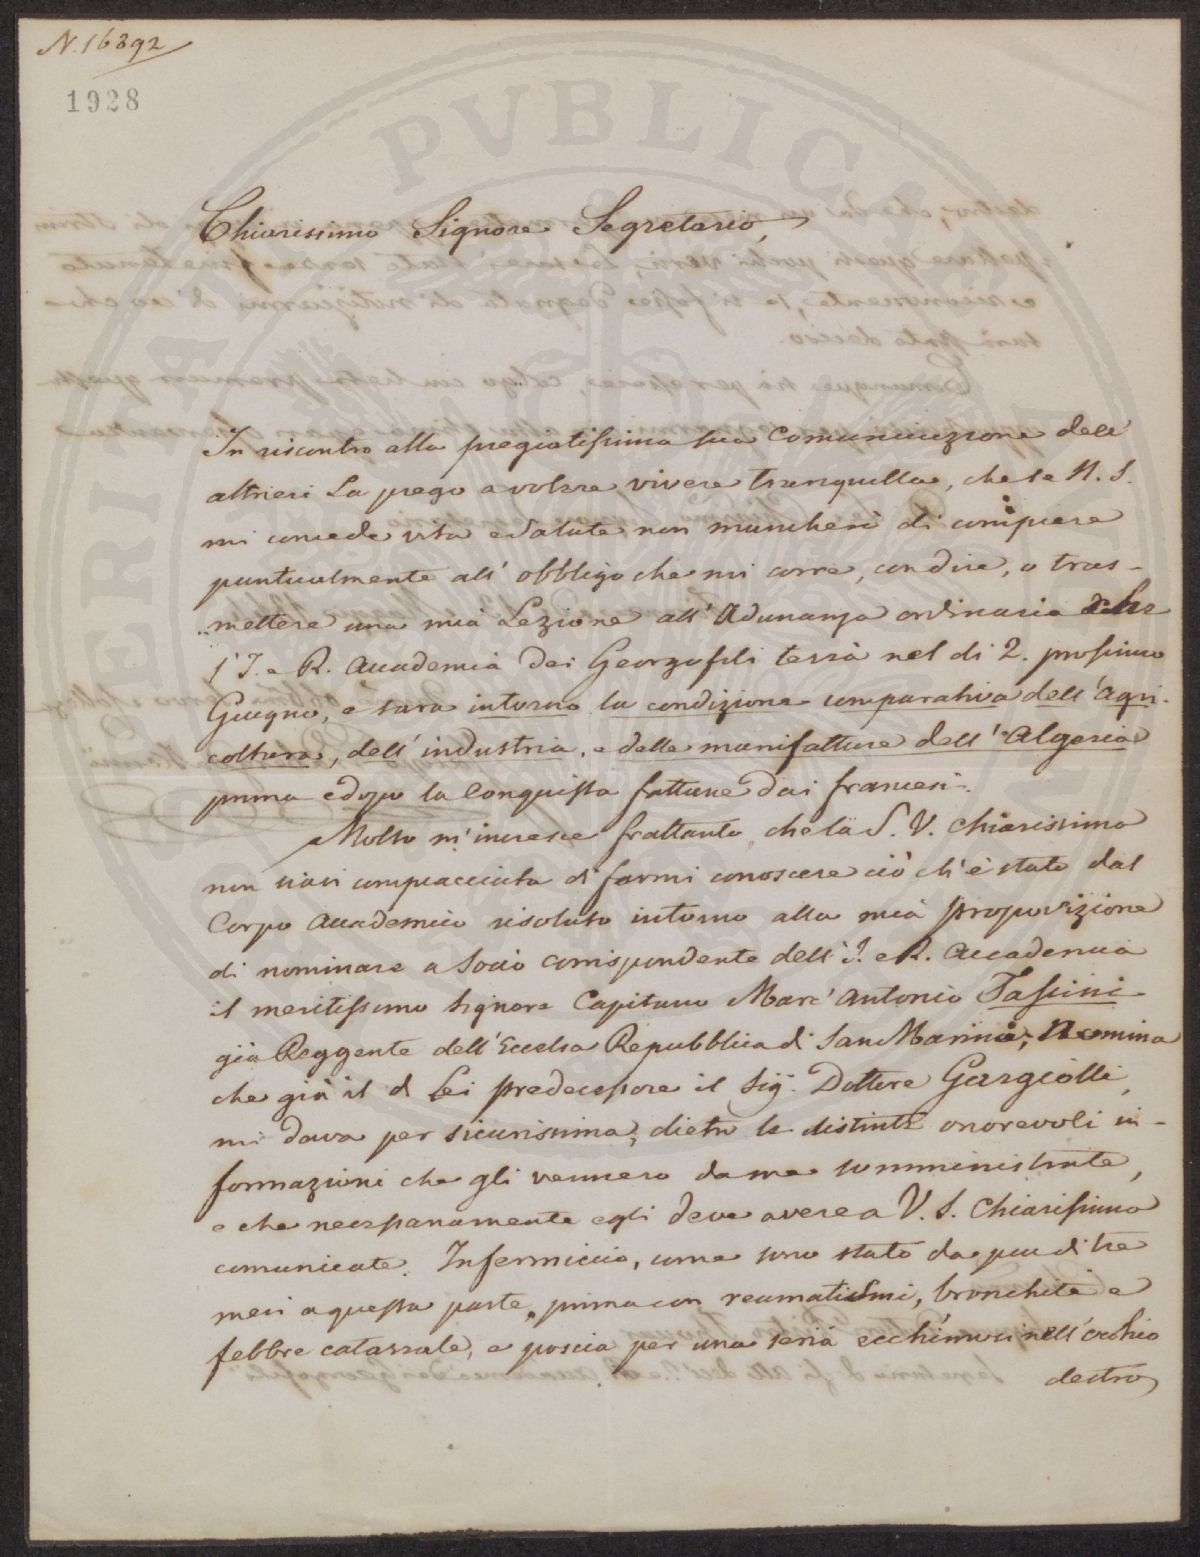 N. 16892
1928
Chiarissimo Signore Segretario,
In riscontro alla pregiatissima sua Comunicazione dell'
altrieri La prego a volere vivere tranquilla, che se N. S.
mi concede vita e salute non mancherò di compiere
puntualmente all' obbligo che mi corre, con dire, o tras-
mettere una mia Lezione all' Adunanza ordinaria che
l' I. e R. Accademia dei Georgofili terrà nel dì 2. prossimo
Giugno, e sarà intorno la condizione comparativa dell' Agri-
coltura, dell' industria, e delle manifatture dell' Algeria
prima e dopo la Conquista fattane dai francesi.
Molto m' incresce frattanto che la S. V. Chiarissima
non siasi compiacciuta di farmi conoscere ciò ch' è stato dal
Corpo Accademico risoluto intorno alla mia proposizione
di nominare a Socio corrispondente dell' I. e R. Accademia
il meritissimo Signore Capitano Marc' Antonio Fascini
già Reggente dell' Eccelsa Repubblica di San Marino; Nomina
che già il di Lei predecessore il Sig. Dottore Gargiolli,
mi dava per sicurissima, dietro le distinte onorevoli in-
formazioni che gli vennero da me somministrate,
e che necessariamente egli deve avere a V. S. Chiarissima
comunicate. Infermiccio, come sono stato da più di tre
mesi a questa parte, prima con reumatismi, bronchite e
febbre catarrale, e poscia per una seria ecchimosi nell' occhio
destro,